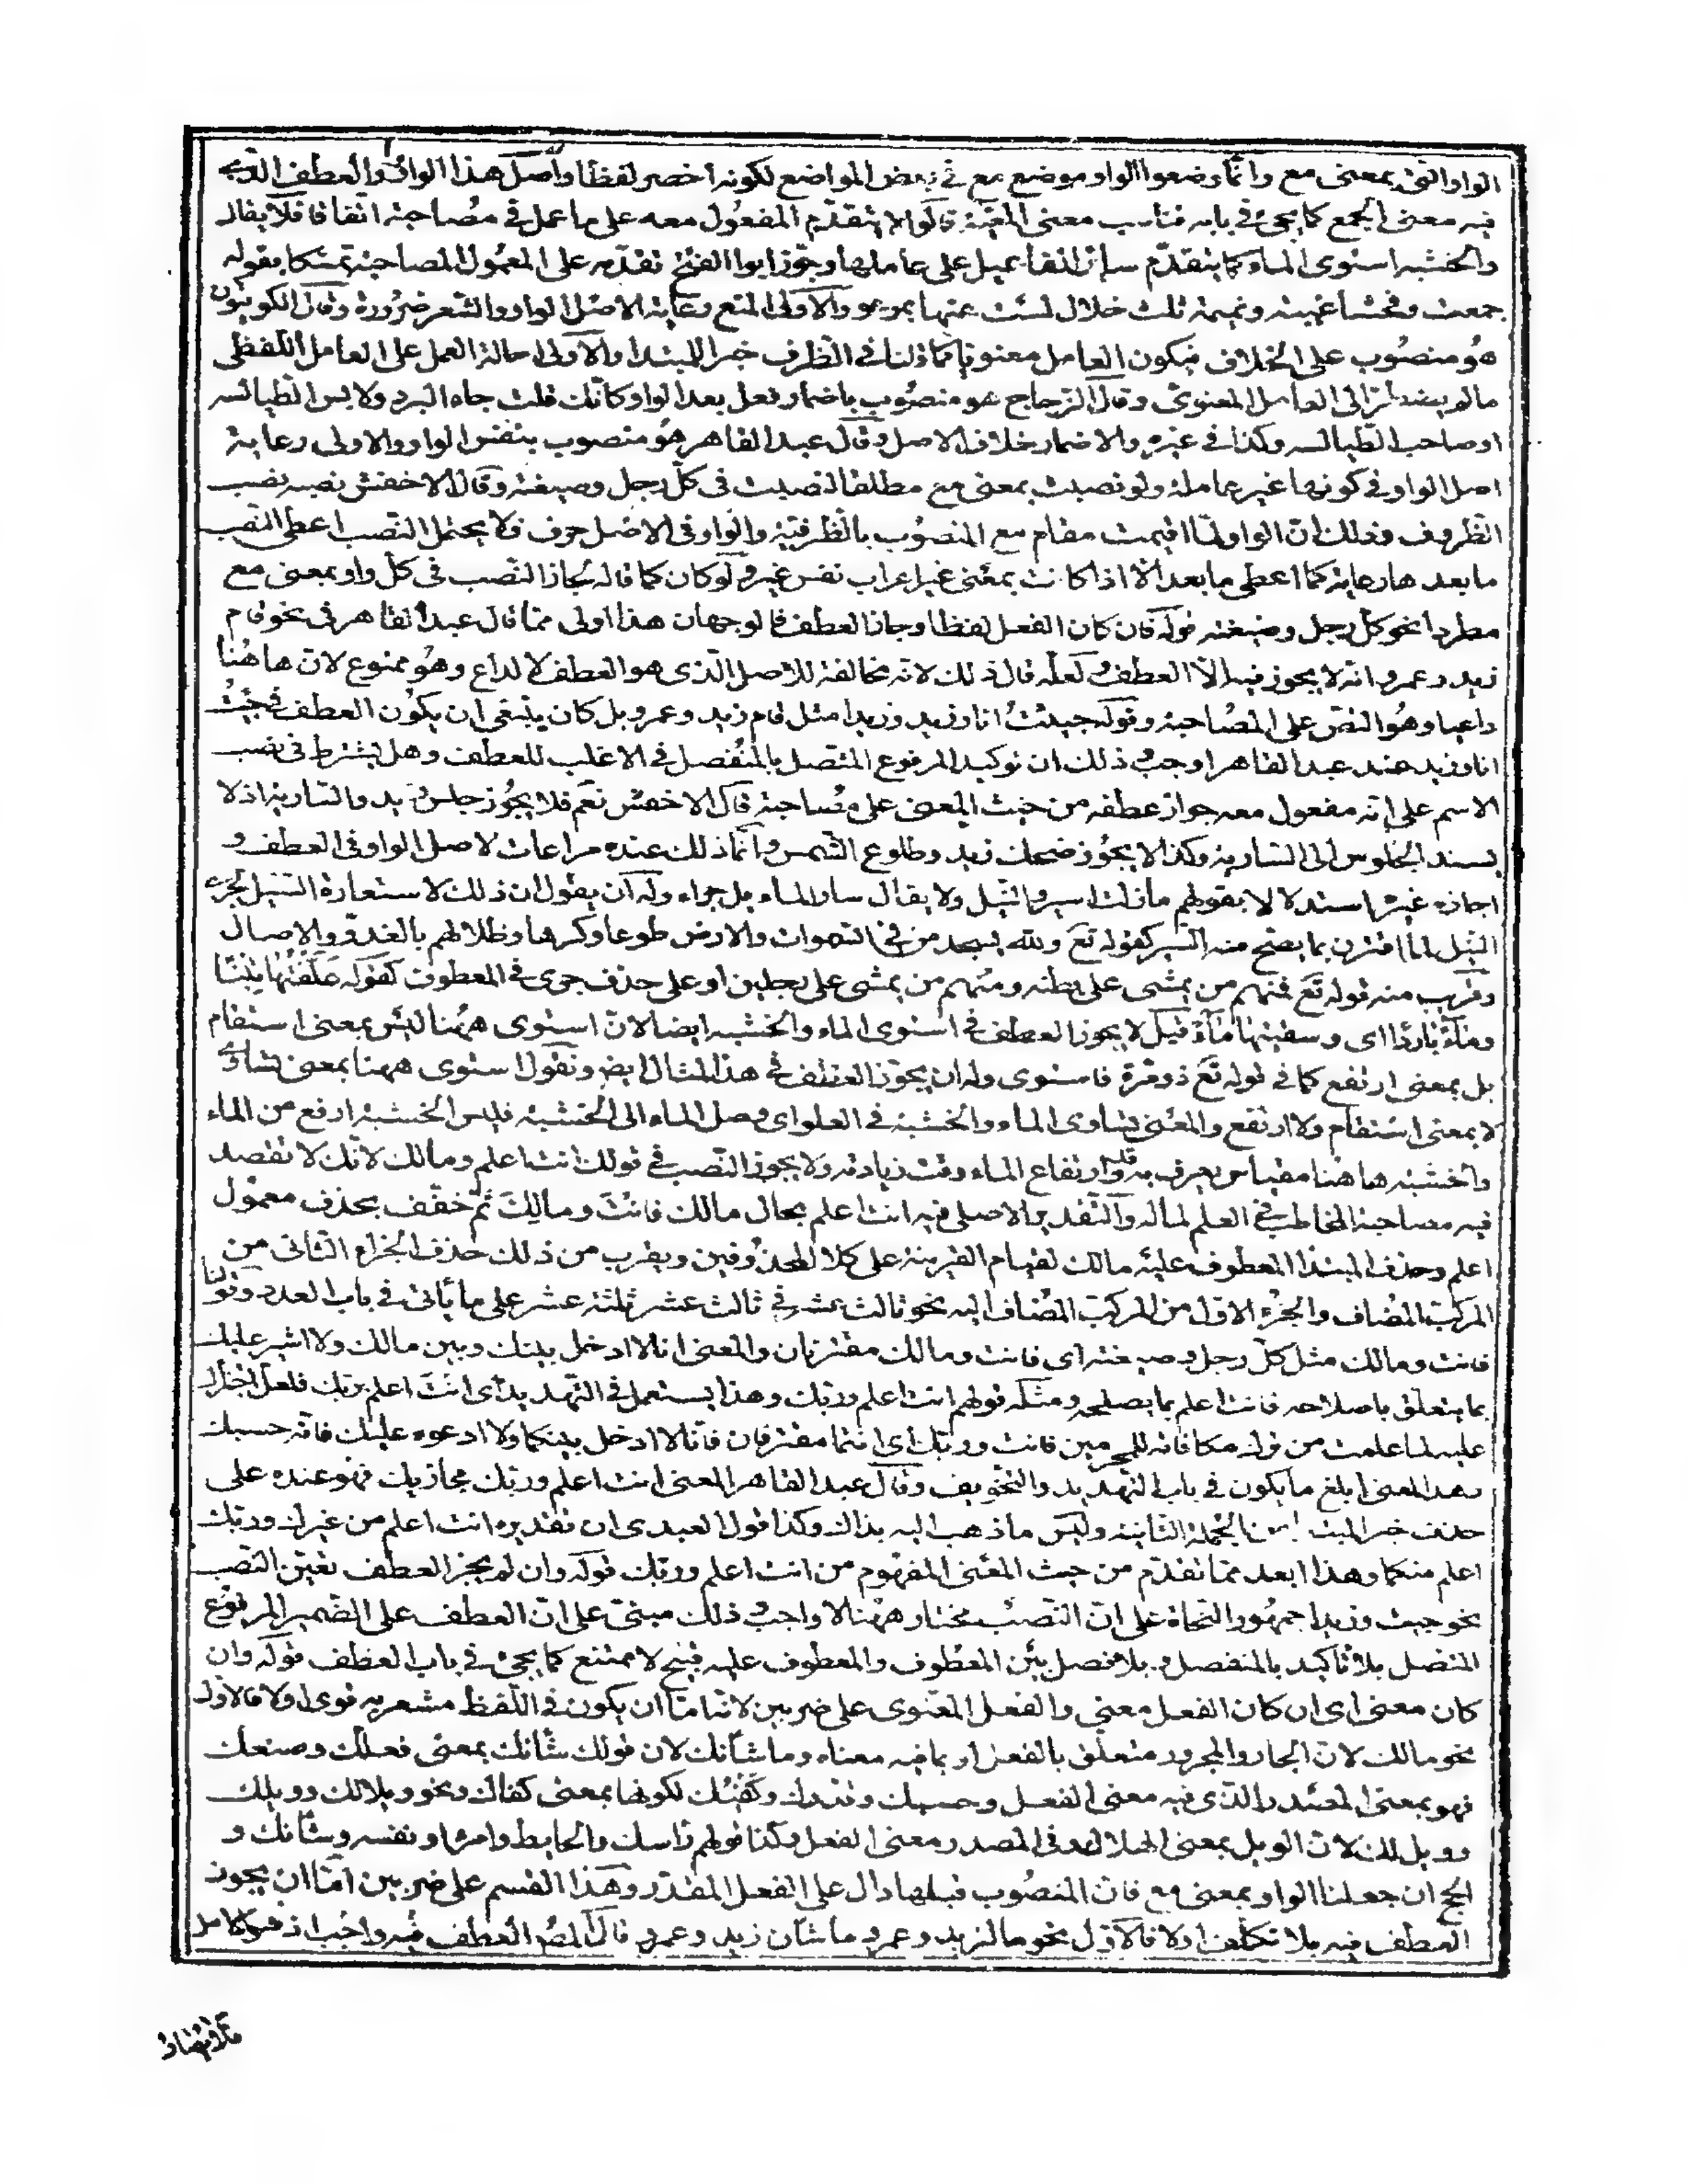 الواو التى بمعنى مع وانّما وضعوا الواو موضع مع فى بعض المواضع لكونه اخصر لفظا واصل هذا الواو واو العطف الذى
فيه معنى الجمع كما يجئ فى بابه فناسب معنى المعيّة قالوا لا يتقدّم المفعول معه على ما عمل فى مصاحبه اتّفاقا فلا يقال
والخشبة استوى الماء كما يتقدّم سائر المفاعيل على عاملها وجوّز ابوا الفتح تقدّمه على المعمول المصاحب تمسّكا بقوله
جمعت وفحشا غيبة ونميمة ثلث خلال لست عنها بمرعو والاولى المنع رعاية لاصل الواو والشعر ضرورة وقال الكوفيون
هو منصوب على الخلاف فيكون العامل معنويا كما قلنا فى الظرف خبر المبتدا والاولى احالة العمل على العامل اللفظى
مالم يضطرّ الى العامل المعنوى وقال الزجاج هو منصوب باضمار فعل بعد الواو كانّك قلت جاء البرد ولابس الطيالسه
او صاحب الطيالسه وكذا فى غيره والاضمار خلاف الاصل وقال عبد القاهر هو منصوب بنفس الواو والاولى رعاية
اصل الواو فى كونها غير عاملة ولو نصبت بمعنى مع مطلقا لنصبت فى كلّ رجل وضيعته وقال الاخفش نصبه نصب
الظروف وذلك انّ الواو لمّا اقيمت مقام مع المنصوب بالظرفيّة والواو فى الاصل حرف فلا يحتمل النصب اعطى النصب
ما بعدها رعاية كما اعطى ما بعد الّا اذا كانت بمعنى غير اعراب نفس غير ولو كان كما قال لجاز النصب فى كل واو بمعنى مع
مطردا نحو كل رجل وضيعته قوله فان كان الفعل لفظا وجاز العطف فالوجهان هذا اولى ممّا قال عبد القاهر فى نحو قام
زيد وعمرو انه لا يجوز فيه الّا العطف ولعلّه قال ذلك لانه مخالفة للاصل الّذى هو العطف لا لداع وهو ممنوع لانّ هاهنا
داعيا وهو النصّ على المصاحبة وقوله جيئت انا وزيد وزيدا مثل قام زيد وعمرو بل كان ينبغى ان يكون العطف فى جئت
انا وزيد عند عبد القاهر اوجب وذلك ان توكيد المرفوع المتصل بالمنفصل فى الاغلب للعطف وهل يشترط فى نصب
الاسم على انه مفعول معه جواز عطفه من حيث المعنى على مصاحبه قال الاخفش نعم فلا يجوز جلس زيد والسارية اذ لا
يسند الجلوس الى السارية وكذا لا يجوز ضحك زيد وطلوع الشمس وانّما ذلك عنده مراعات لاصل الواو فى العطف و
اجازه غيره استدلالا بقولهم مازلت اسير والنيل ولا يقال سار الماء بل جرى وله ان يقول ان ذلك لاستعارة السير لجرى
النيل لمّا اقترن بما يصح منه السير كقوله تع ولله يسجد من فى السموات والارض طوعا وكرها وظلالهم بالغدو والاصال
وقريب منه قوله تع فمنهم من يمشى على بطنه ومنهم من يمشى على رجلين او على حذف جرى فى المعطوف كقوله علفتها تبنا
وماء باردا اى وسقيتها ماء قيل لا يجوز العطف فى استوى الماء والخشبه ايضا لانّ استوى ههنا ليس بمعنى استقام
بل بمعنى ارتفع كما فى قوله تع ذو مرة فاستوى وله ان يجوّز العطف فى هذا المثال ايض ونقول استوى ههنا بمعنى تساوى
لا بمعنى استقام ولا ارتفع والمعنى تساوى الماء والخشبة فى العلو اى وصل الماء الى الخشبة فليس الخشبة ارفع من الماء
والخشبة هاهنا مقياس يعرف به قدر ارتفاع الماء وقت زيادته ولا يجوز النصب فى قولك انت اعلم ومالك لانّك لا تقصد
فيه مصاحبة المخاطب فى العلم لماله والتقدير الاصلى فيه انت اعلم بحال مالك فانت ومالك ثمّ خفّف بحذف معمول
اعلم وحذف المبتدا المعطوف عليه مالك لقيام القرينة على كلا المحذوفين ويقرب من ذلك حذف الجزء الثانى من
المركب المضاف والجزء الاول من المركب المضاف اليه نحو ثالث عشر فى ثالث عشر ثلثة عشر على ما يأتى فى باب العدد وقولنا
فانت ومالك مثل كلّ رجل وضيعته اى فانت ومالك مقترنان والمعنى انا لا ادخل بينك وبين مالك ولا اشير عليك
بما يتعلّق باصلاحه فانت اعلم بما يصلحه ومثله قولهم انت اعلم وربّك وهذا يستعمل فى التهديد اى انت اعلم بربّك
عليه لما علمت من مكافاته للمجرمين فانت وربّك اى انتما مقترنان فانا لا ادخل بينكما ولا ادعوه عليك فانّه حسبك
وهذا المعنى ابلغ ما يكون فى باب التهديد والتخويف وقال عبد القاهر المعنى انت اعلم وربّك مجازيك فهو عنده على
حذف خبر المبتدا من الجملة الثانية وليس ما ذهب اليه بذاك وكذا قول العبدى ان تقديره انت اعلم من غيرك وربّك
اعلم منكما وهذا ابعد ممّا تقدّم من حيث المعنى المفهوم من انت اعلم وربّك قوله وان لم يجز العطف تعيّن النصب
نحو جيت وزيدا جمهور النحاة على انّ النصب مختار ههنا لا واجب وذلك مبنىّ على انّ العطف على الضمير المرفوع
المتصل بلا تأكيد بالمنفصل وبلا فصل بين المعطوف والمعطوف عليه قبيح لا ممتنع كما يجئ فى باب العطف قوله وان
كان معنى اى ان كان الفعل معنى والفعل المعنوى على ضربين لانّه امّا ان يكون فى اللفظ مشعر به قوى اولا فالاول
نحو مالك لانّ الجار والمجرور متعلّق بالفعل او بما فيه معناه وما شأنك لان قولك شأنك بمعنى فعلك وصنعك
فهو بمعنى المصدر الذى فيه معنى الفعل وحسبك وقدك وكفيك لكونها بمعنى كفاك ونحو ويلا لك وويلك
وويل لك لانّ الويل بمعنى الهلاك وفى المصدر معنى الفعل وكذا قولهم رأسك والحايط وامرءا ونفسه وشأنك و
الحج ان جعلنا الواو بمعنى مع فانّ المنصوب قبلها دال على الفعل المقدّر وهذا القسم على ضربين امّا ان يجوز
العطف فيه بلا تكلّف اولا فالاوّل نحو ما لزيد وعمرو وما شأن زيد وعمرو قال المص العطف فيه واجب اذ هو الاصل